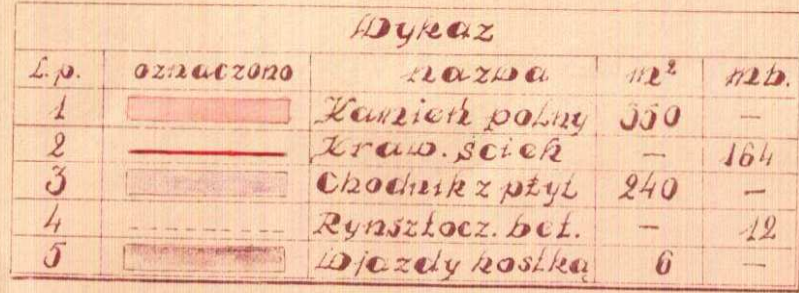 Wykaz
L.p. oznaczono nazwa m² mb.
1 Kamień polny 350 —
2 Kraw. ściek — 164
3 Chodnik z płyt 240 —
4 Rynsztocz. bet. — 12
5 Wjazdy kostką 6 —